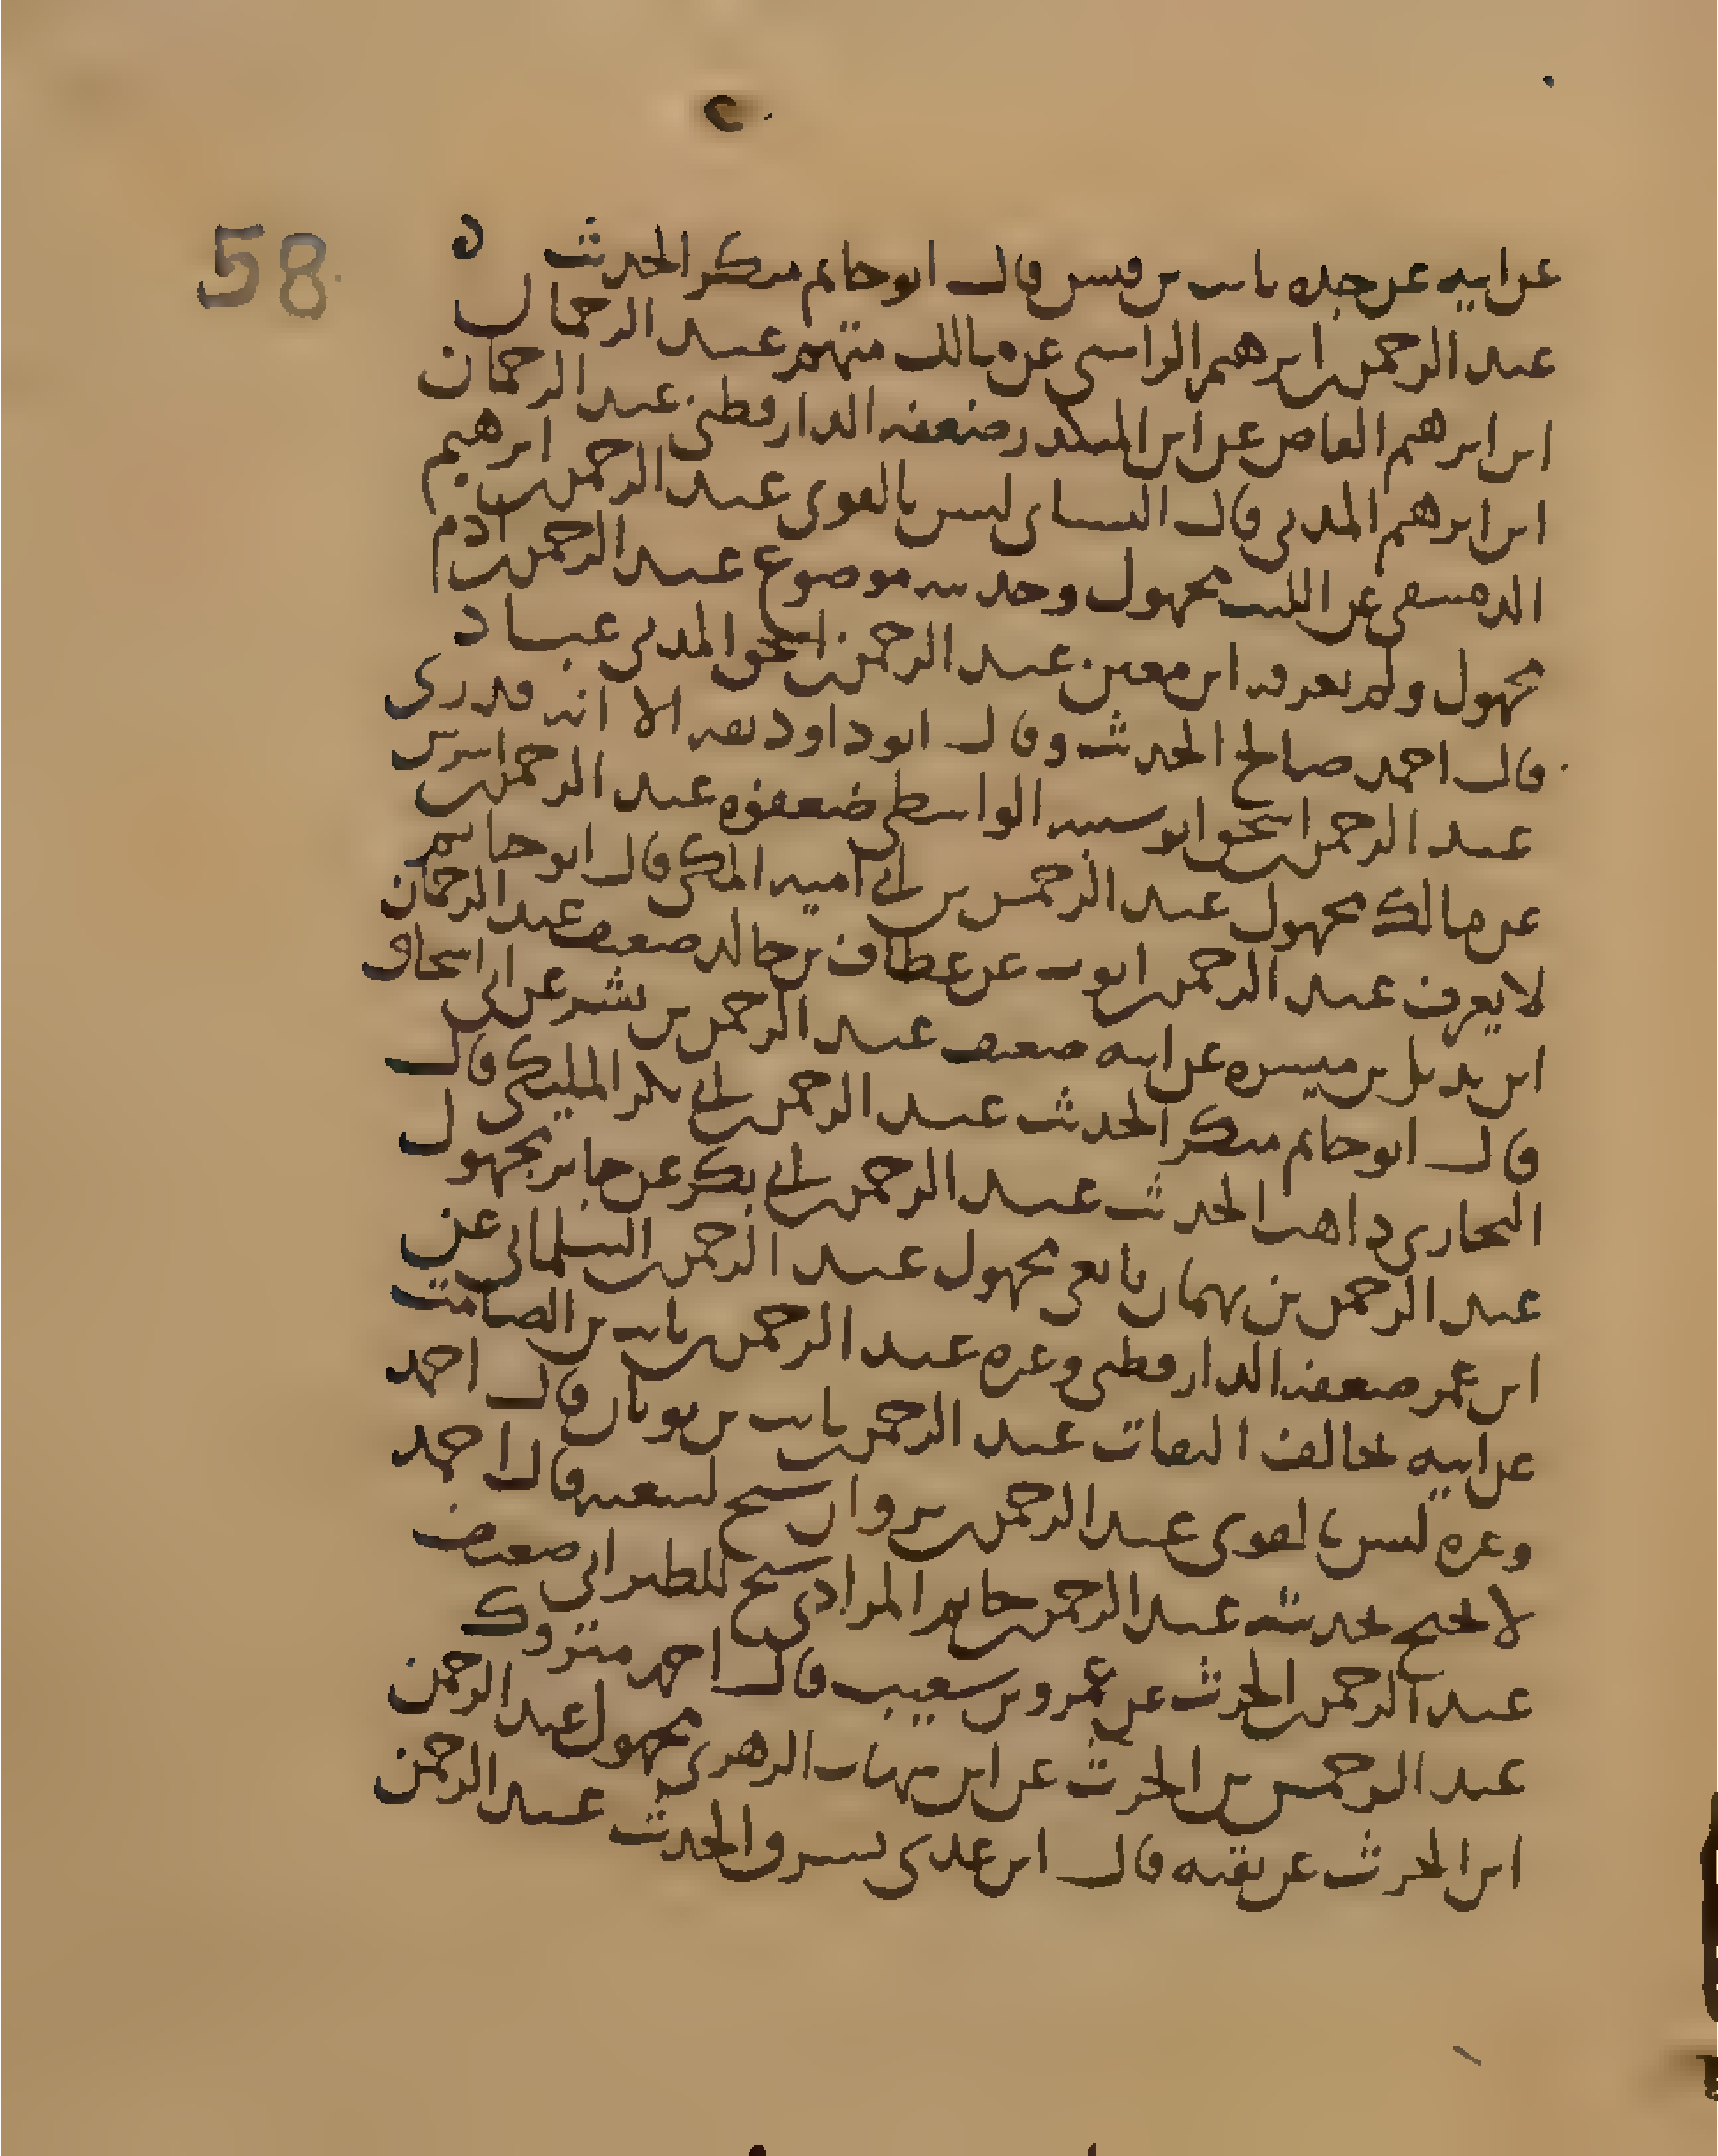 58
عن ابيه عن جده ثابت بن قيس قال ابو حاتم منكر الحديث د
عبد الرحمن بن ابرهيم الراسبي عن مالك متهم عبد الرحمان
ابن ابرهيم القاص عن ابن المنكدر ضعفه الدارقطني عبد الرحمان
ابن ابرهيم المدني قال النسائي ليس بالقوي عبد الرحمن بن ابرهيم
الدمشقي عن الليث مجهول وحديثه موضوع عبد الرحمن بن ادم
مجهول ولم يعرفه ابن معين عبد الرحمن بن اسحق المدني عباد
قال احمد صالح الحديث وقال ابو داود ثقه الا انه قدري
عبد الرحمن بن اسحق ابو شيبه الواسطي ضعفوه عبد الرحمن بن
عن مالك مجهول عبد الرحمن بن ابي اميه المكي قال ابو حاتم
لا يعرف عبد الرحمن بن ايوب عن عطاف بن خالد ضعيف عبد الرحمان
ابن بديل بن ميسره عن ابيه ضعيف عبد الرحمن بن بشر عن ابن اسحاق
قال ابو حاتم منكر الحديث عبد الرحمن بن ابي بكر المليكي قال
البخاري ذاهب الحديث عبد الرحمن بن ابي بكر عن جابر مجهول
عبد الرحمن بن بهمان تابعي مجهول عبد الرحمن بن البيلماني عن
ابن عمر ضعفه الدارقطني وغيره عبد الرحمن بن ثابت بن الصامت
عن ابيه يخالف الثقات عبد الرحمن بن ثابت بن ثوبان قال احمد
وغيره ليس بالقوي عبد الرحمن بن ثروان شيخ لشعبه قال احمد
لا يحتج بحديثه عبد الرحمن بن حاتم المرادي شيخ للطبراني ضعيف
عبد الرحمن بن الحرث عن عمرو بن شعيب قال احمد متروك
عبد الرحمن بن الحرث عن ابن شهاب الزهري مجهول عبد الرحمن
ابن الحرث عن بقيه قال ابن عدي يسرق الحديث عبد الرحمن